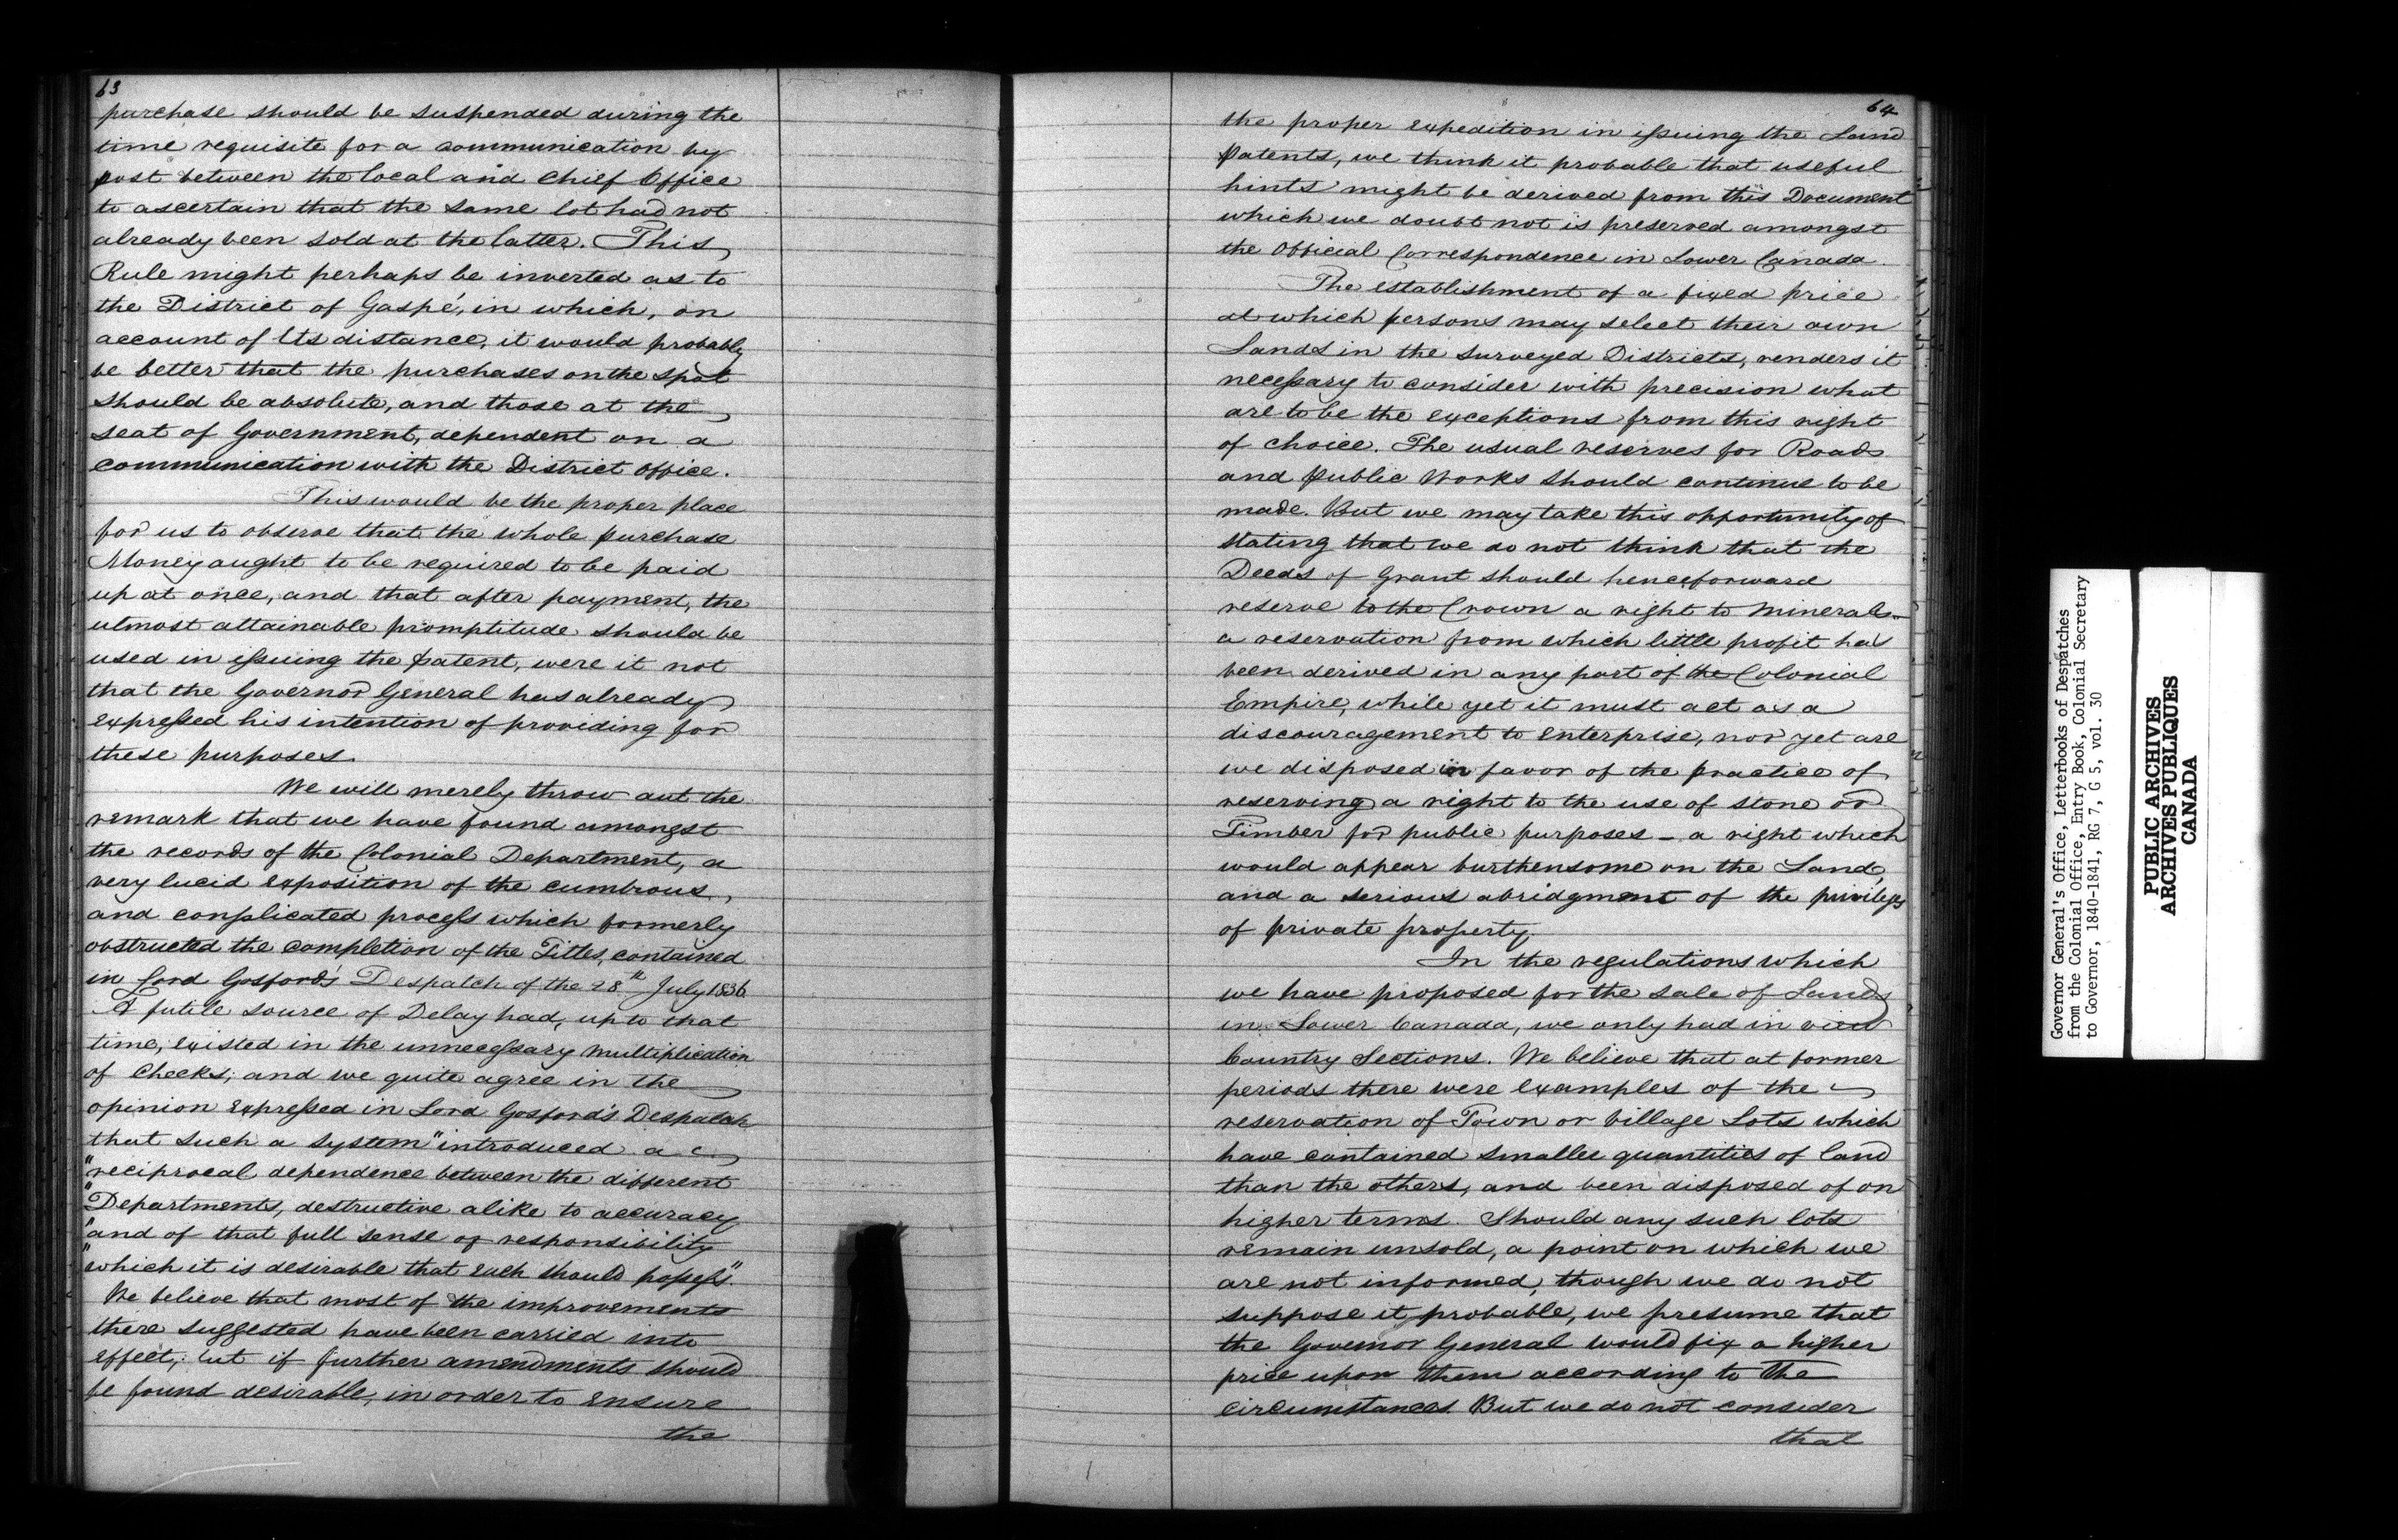 63
purchase should be suspended during the
time requisite for a communication by
post between the local and Chief Office
to ascertain that the same lot had not
already been sold at the latter. This
Rule might perhaps be inverted as to
the District of Gaspé, in which, on
account of Its distance, it would probably
be better that the purchases on the spot
should be absolute, and those at the
seat of Government, dependent on a
communication with the District Office.
This would be the proper place
for us to observe that the whole purchase
Money aught to be required to be paid
up at once, and that after payment, the
utmost attainable promptitude should be
used in issuing the patent, were it not
that the Governor General has already
expressed his intention of providing for
these purposes.
We will merely throw out the
remark that we have found amongst
the records of the Colonial Department, a
very lucid exposition of the cumbrous,
and complicated process which formerly
obstructed the completion of the Titles, contained
in Lord Gosford's Despatch of the 28th July 1836
A futile source of Delay had, up to that
time, existed in the unnecessary multiplication
of Checks; and we quite agree in the
opinion expressed in Lord Gosford's Despatch
that such a system "introduced a
"reciprocal dependence between the different
"Departments, destructive alike to accuracy
"and of that full sense of responsibility
"which it is desirable that each should possess"
We believe that most of the improvements
there suggested have been carried into
effect; but if further amendments should
be found desirable, in order to ensure
the
64
the proper expedition in issuing the Land
Patents, we think it probable that useful
hints might be derived from this Document
which we doubt not is preserved amongst
the Official Correspondence in Lower Canada
The establishment of a fixed price
at which persons may select their own
Lands in the surveyed Districts, renders it
necessary to consider with precision what
are to be the exceptions from this right
of choice. The usual reserves for Roads
and public Works should continue to be
made. But we may take this opportunity of
stating that we do not think that the
Deeds of Grant should henceforward
reserve to the Crown a right to Minerals
a reservation from which little profit has
been derived in any part of the Colonial
Empire, while yet it must act as a
discouragement to enterprise, nor yet are
we disposed in favor of the practice of
reserving a right to the use of stone or
Timber for public purposes – a right which
would appear burthensome on the Land,
and a serious abridgment of the privileges
of private property.
In the regulations which
we have proposed for the sale of Lands
in Lower Canada, we only had in view
Country Sections. We believe that at former
periods there were examples of the
reservation of Town or Village Lots which
have contained smaller quantities of land
than the others, and been disposed of on
higher terms. Should any such lots
remain unsold, a point on which we
are not informed, though we do not
suppose it probable, we presume that
the Governor General would fix a higher
price upon them according to the
circumstances. But we do not consider
that
Governor General's Office, Letterbooks of Despatches
from the Colonial Office, Entry Book, Colonial Secretary
to Governor, 1840-1841, RG 7, G 5, vol. 30
PUBLIC ARCHIVES
ARCHIVES PUBLIQUES
CANADA